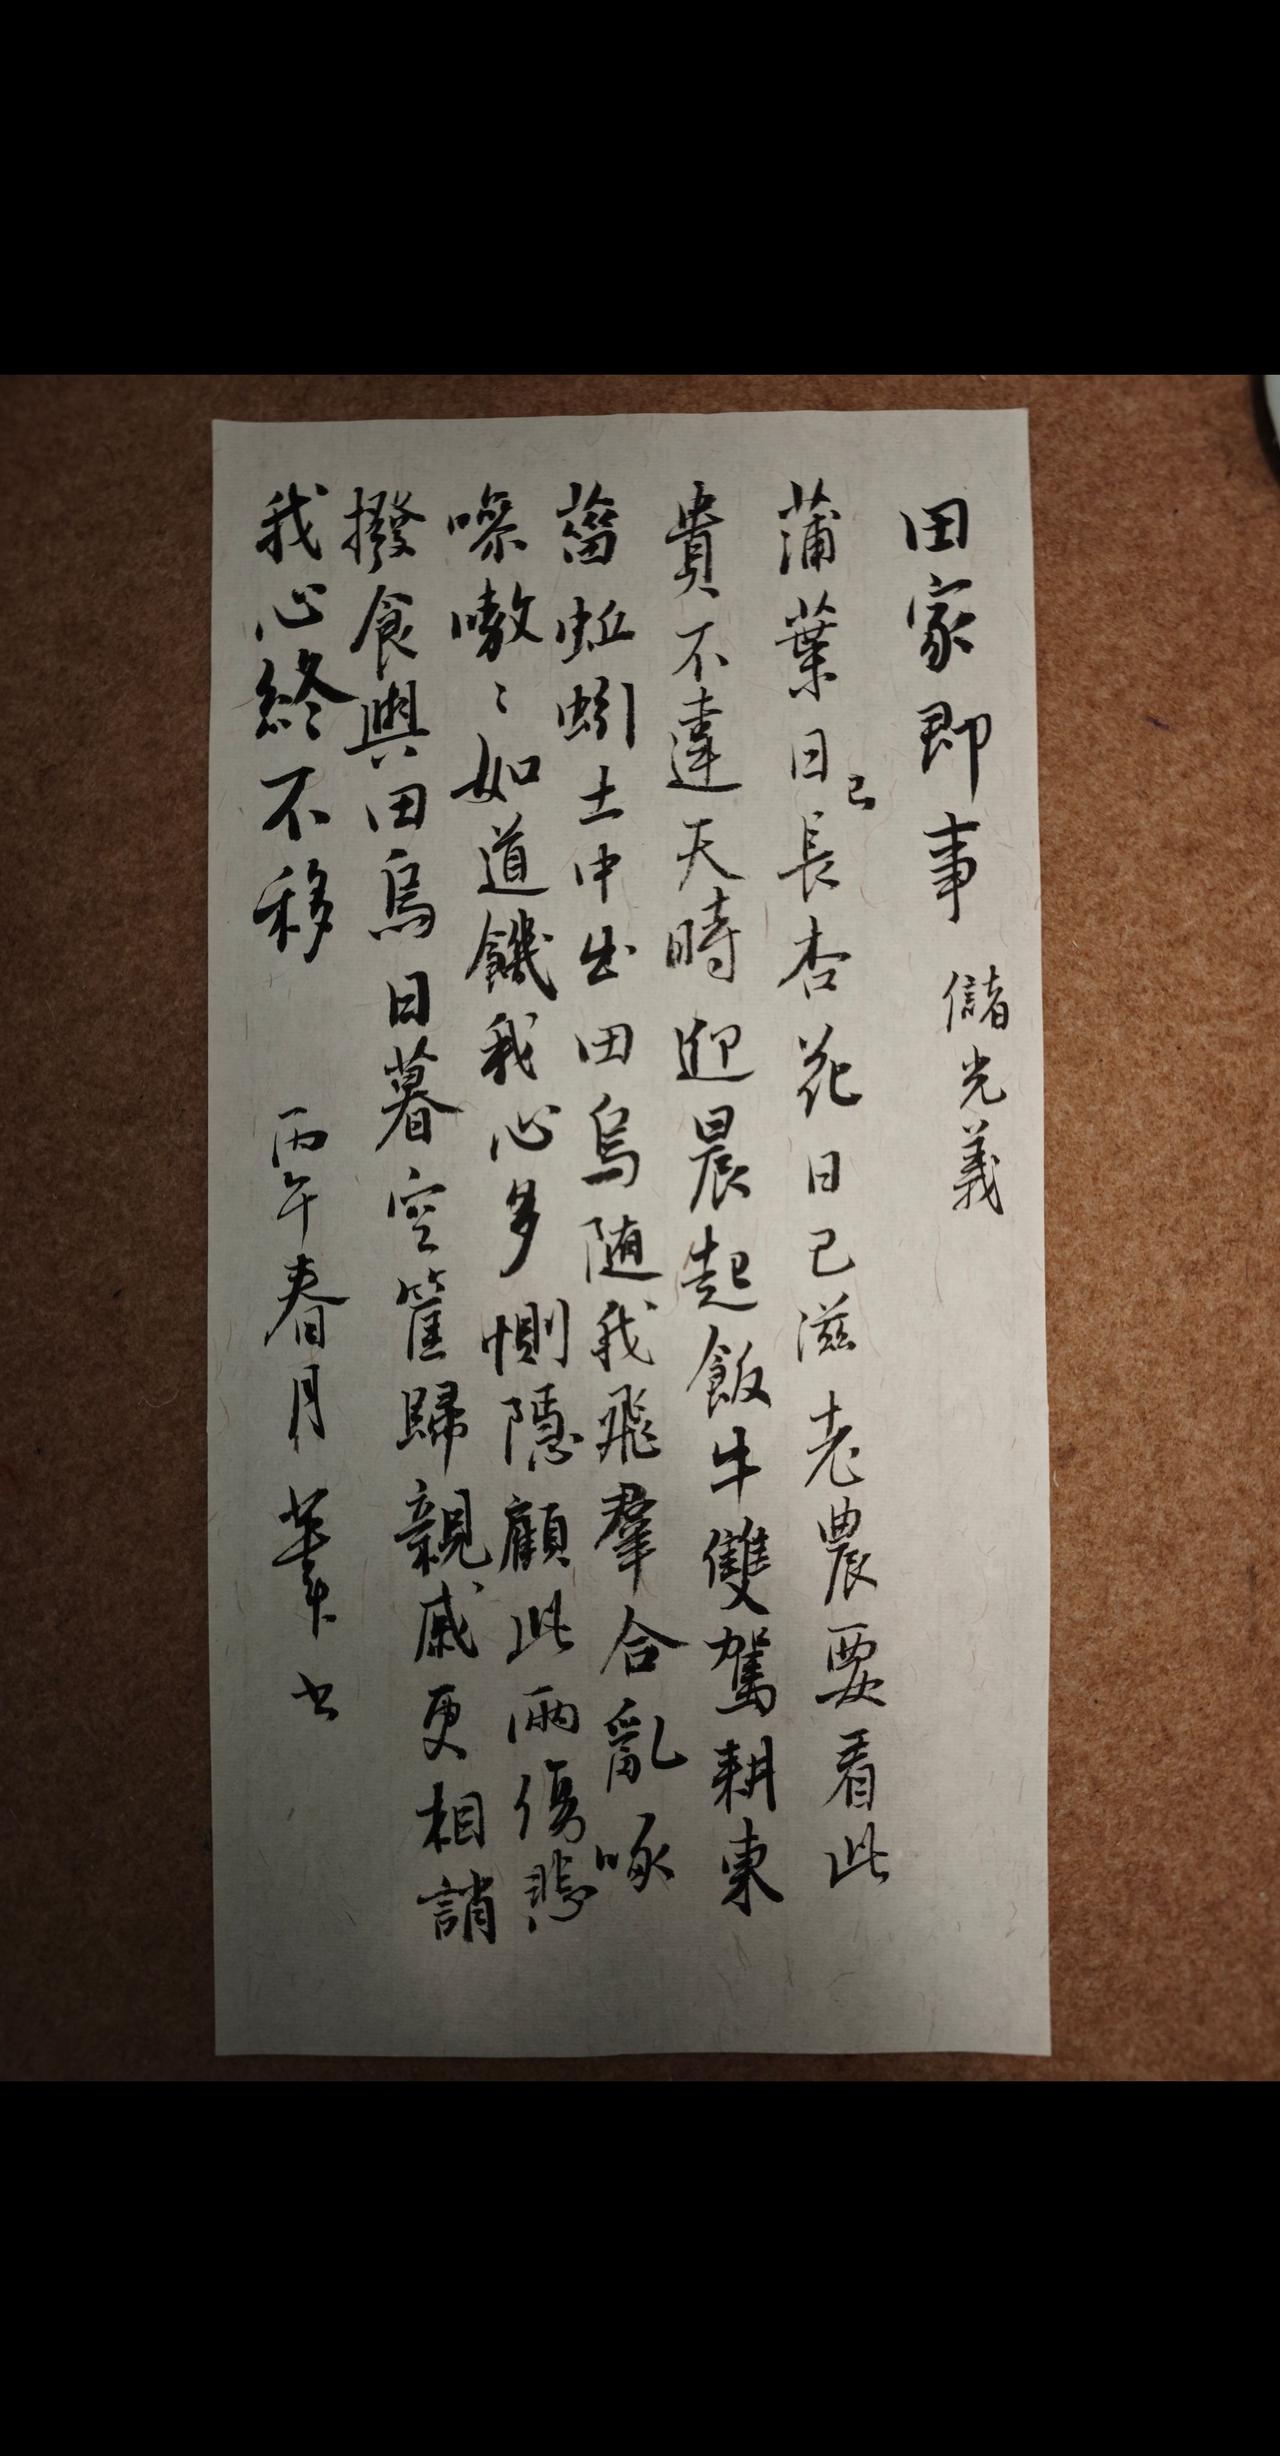 田家即事 儲光義
蒲葉日已長杏花日已滋老農要看此
貴不違天時迎晨起飯牛雙駕耕東
菑蚯蚓土中出田烏随我飛羣合亂啄
噪嗷〻如道饑我心多惻隱顧此兩傷悲
撥食與田烏日暮空筐歸親戚更相誚
我心終不移 丙午春月 书